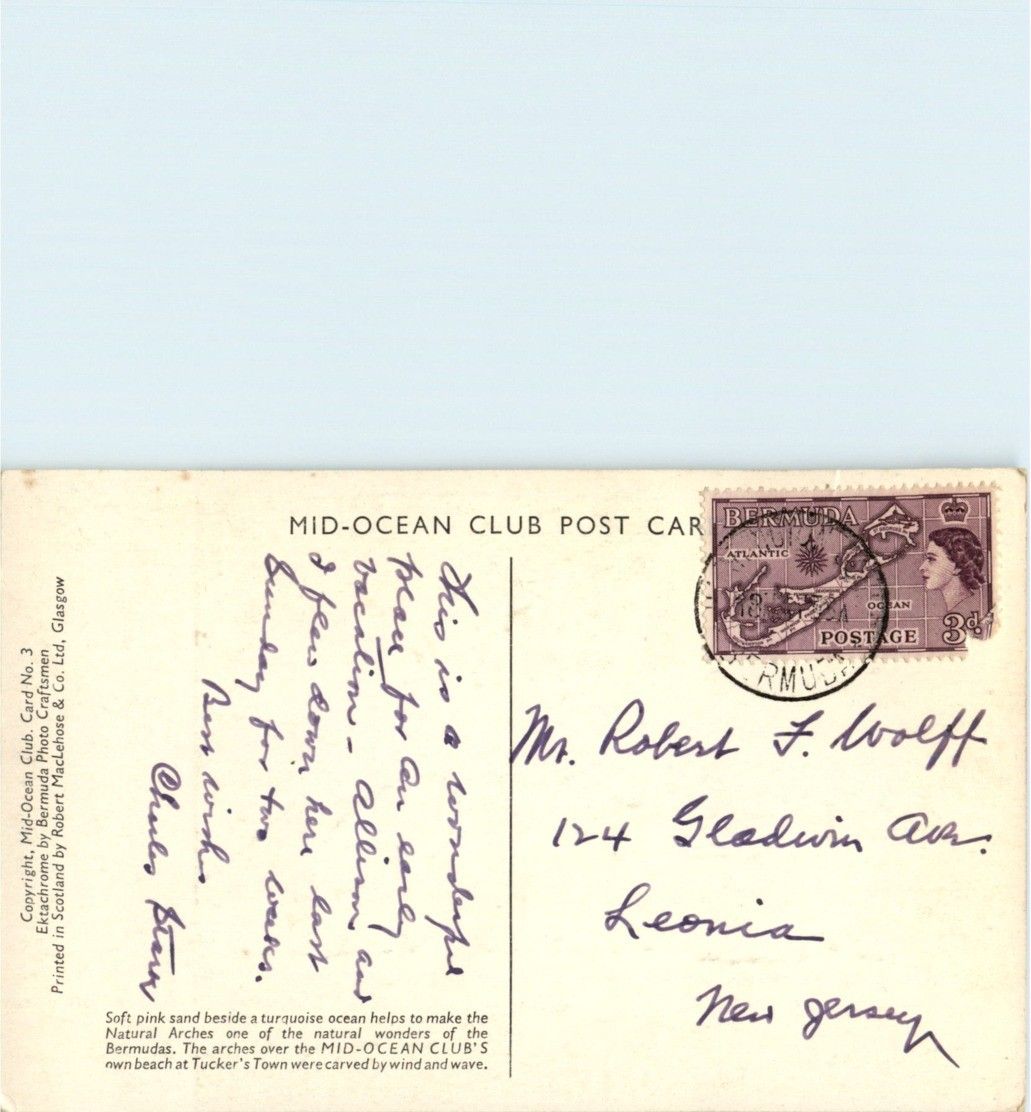 MID-OCEAN CLUB POST CAR
BERMUDA
ATLANTIC
OCEAN
POSTAGE 3d.
BERMUDA
This is a wonderful
place for an early
vacation - Allison and
I flew down here last
Sunday for two weeks.
Best wishes
Charles Starr
Mr. Robert F. Wolff
124 Gladwin Ave.
Leonia
New Jersey
Copyright, Mid-Ocean Club. Card No. 3
Ektachrome by Bermuda Photo Craftsmen
Printed in Scotland by Robert MacLehose & Co. Ltd, Glasgow
Soft pink sand beside a turquoise ocean helps to make the
Natural Arches one of the natural wonders of the
Bermudas. The arches over the MID-OCEAN CLUB'S
own beach at Tucker's Town were carved by wind and wave.